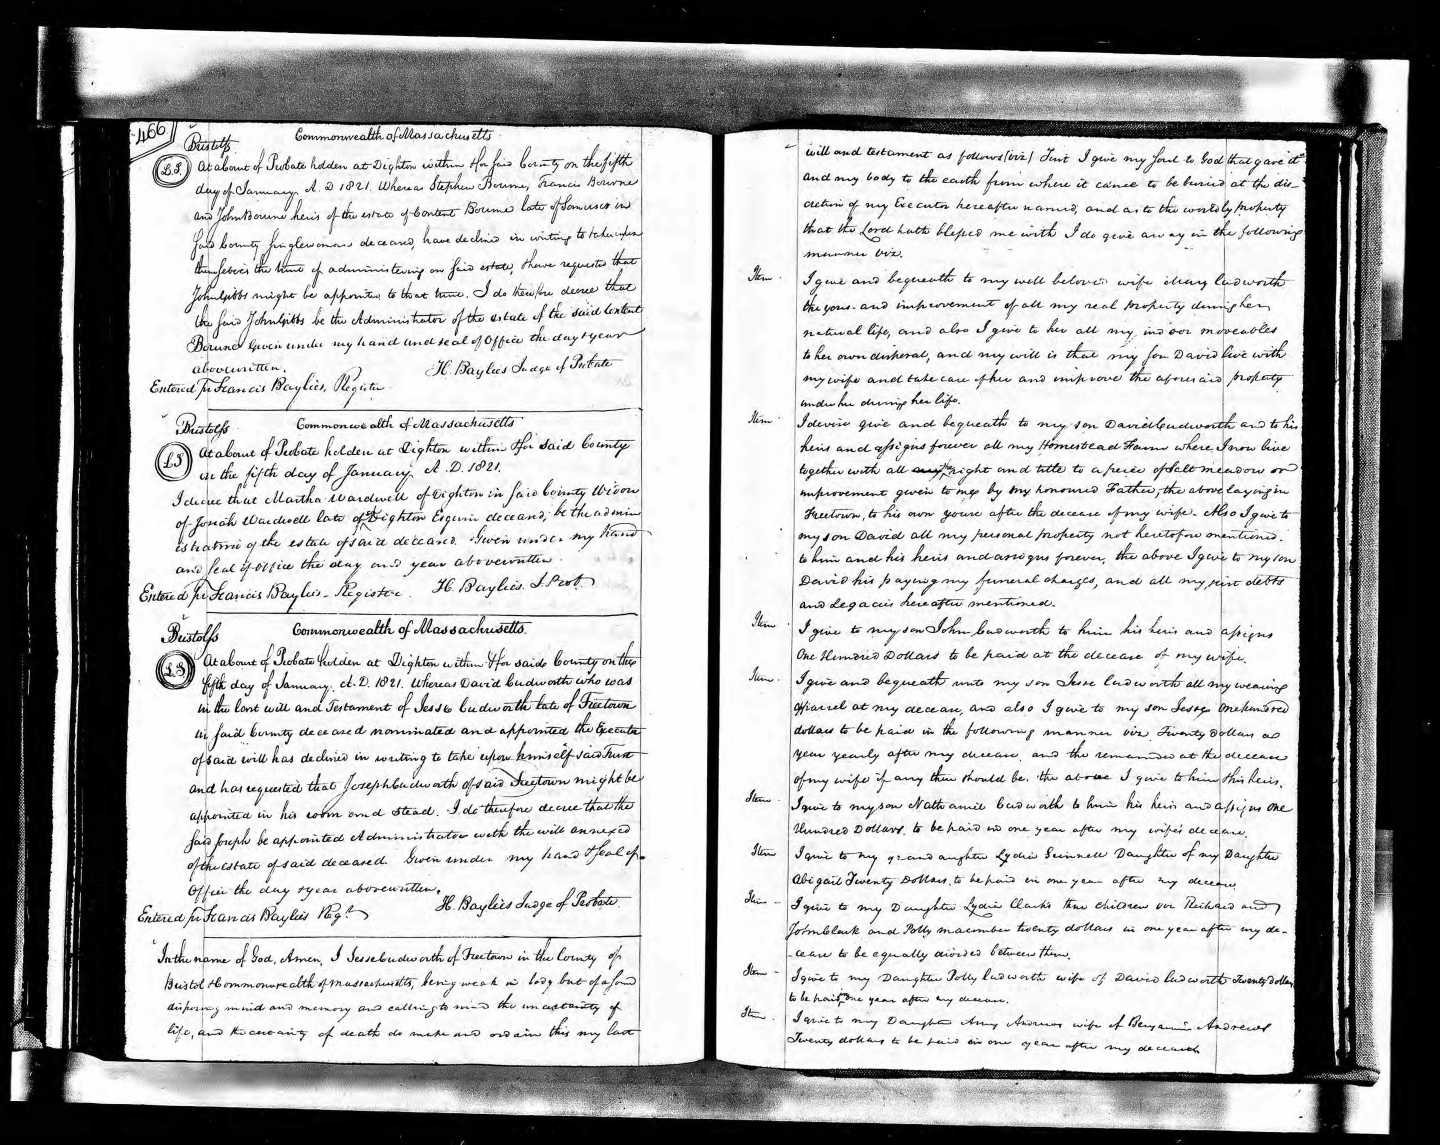 466
Bristol ss Commonwealth of Massachusetts
L.S. At a Court of Probate holden at Dighton within & for said County on the fifth
day of January A. D 1821. Whereas Stephen Bourne, Francis Bourne
and John Bourne heirs of the estate of Content Bourne late of Somerset in
said County Singlewoman deceased, have declined in writing to take upon
themselves the trust of administering on said estate, & have requested that
John Gibbs might be appointed to that trust. I do therefore decree that
the said John Gibbs be the Administrator of the estate of the said Content
Bourne Given under my hand and seal of Office the day & year
abovewritten. H. Baylies Judge of Probate
Entered pr Francis Baylies, Register
Bristol ss Commonwealth of Massachusetts
LS At a Court of Probate holden at Dighton within & for said County
on the fifth day of January A. D. 1821.
I decree that Martha Wardwell of Dighton in said County Widow
of Josiah Wardwell late of sd Dighton Esquire deceased, be the admin
istratrix of the estate of said deceased. Given under my Hand
and seal of office the day and year abovewritten
Entered pr Francis Baylies - Register. H. Baylies. J. Prob.
Bristol ss Commonwealth of Massachusetts
LS At a Court of Probate holden at Dighton within & for said County on the
fifth day of January. A. D. 1821. Whereas David Cudworth who was
in the last will and Testament of Jesse Cudworth late of Freetown
in said County deceased nominated and appointed the Executor
of said will has declined in writing to take upon himself said Trust
and has requested that Joseph Cudworth of said Freetown might be
appointed in his room and stead. I do therefore decree that the
said Joseph be appointed Administrator with the will annexed
of the estate of said deceased Given under my hand & seal of
Office the day & year abovewritten.
H. Baylies Judge of Probate
Entered pr Francis Baylies Regr
In the name of God, Amen, I Jesse Cudworth of Freetown in the County of
Bristol & Commonwealth of Massachusetts, being weak in body but of a sound
disposing mind and memory and calling to mind the uncertainty of
life, and the certainty of death do make and ordain this my last
will and testament as follows (viz) First I give my soul to God that gave it
and my body to the earth from where it came to be buried at the dis-
cretion of my Executor hereafter named, and as to the worldly property
that the Lord hath blessed me with I do give away in the following
manner viz.
Item I give and bequeath to my well beloved wife Mary Cudworth
the youse and improvement of all my real property during her
natural life, and also I give to her all my indoor moveables
to her own disposal, and my will is that my son David live with
my wife and take care of her and improve the aforesaid property
under her during her life.
Item I devise give and bequeath to my son David Cudworth and to his
heirs and assigns forever all my Homestead Farm where I now live
together with all my the right and title to a peice of Salt meadow or
improvement given to me by my honoured Father, the above laying in
Freetown, to his own youse after the decease of my wife. Also I give to
my son David all my personal property not heretofore mentioned.
to him and his heirs and assigns forever, the above I give to my son
David his paying my funeral charges, and all my just debts
and Legacies hereafter mentioned.
Item I give to my son John Cudworth to him his heirs and assigns
One Hundred Dollars to be paid at the decease of my wife.
Item I give and bequeath unto my son Jesse Cudworth all my wearing
apparel at my decease, and also I give to my son Jesse One hundred
dollars to be paid in the following manner viz. Twenty dollars a
year yearly after my decease, and the remainder at the decease
of my wife if any there should be. the above I give to him & his heirs.
Item I give to my son Nathaniel Cudworth to him his heirs and assigns One
Hundred Dollars. to be paid in one year after my wife's decease.
Item I give to my grand aughter Lydia Grinnell Daughter of my Daughter
Abigail Twenty Dollars, to be paid in one year after my decease.
Item - I give to my Daughter Lydia Clark's three children viz Richard and
John Clark and Polly macumber twenty dollars in one year after my de-
-cease to be equally divided between them.
Item - I give to my Daughter Polly Cudworth wife of David Cudworth Twenty dollars
to be paid in one year after my decease.
Item - I give to my Daughter Amy Andrews wife of Benjamin Andrews
Twenty dollars to be paid in one year after my decease